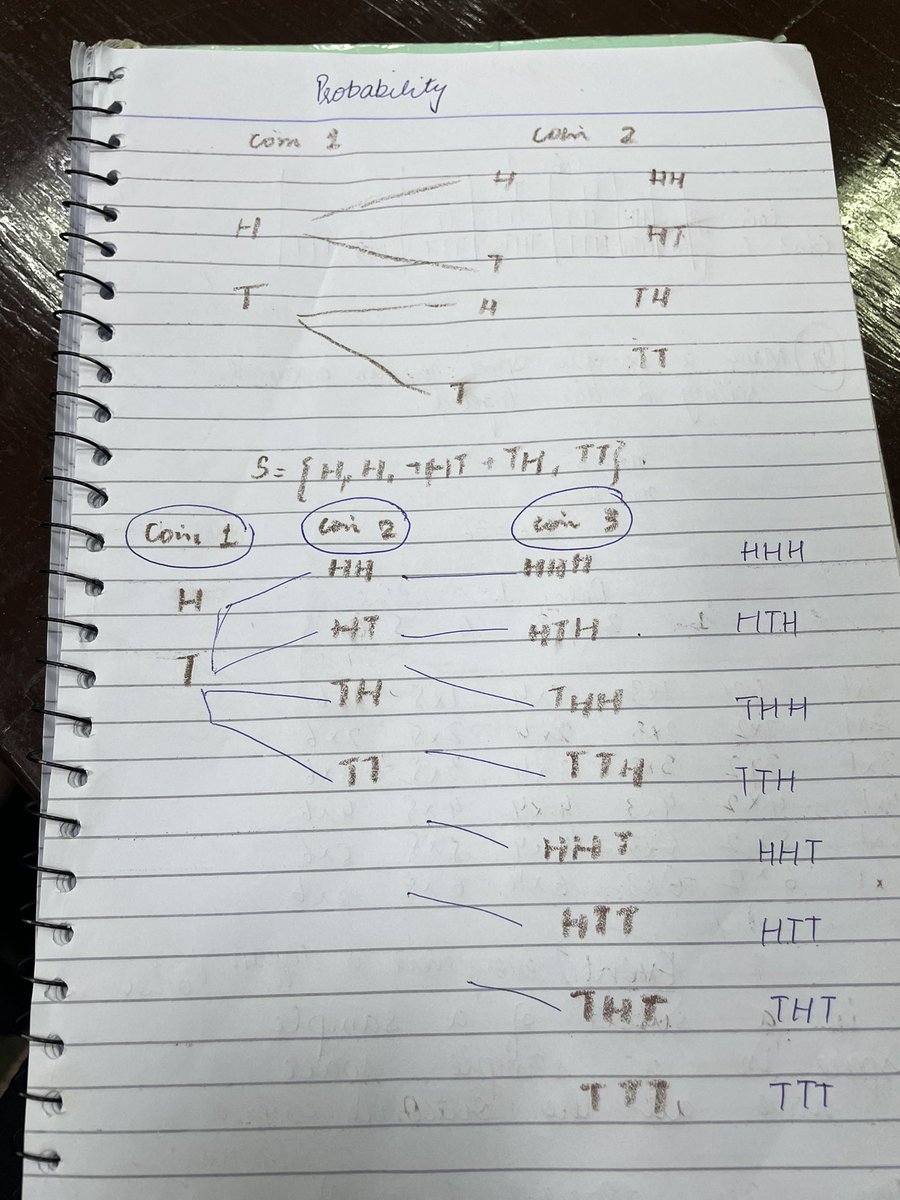 Probability
Coin 1 Coin 2
H HH
H HT
T
T H TH
TT
T
S = { H, H, + HT + TH, TT} .
Coin 1 Coin 2 Coin 3
HH HHH HHH
H
HT HTH HTH
T
TH THH THH
TT TTH TTH
HHT HHT
HTT HTT
THT THT
TTT TTT